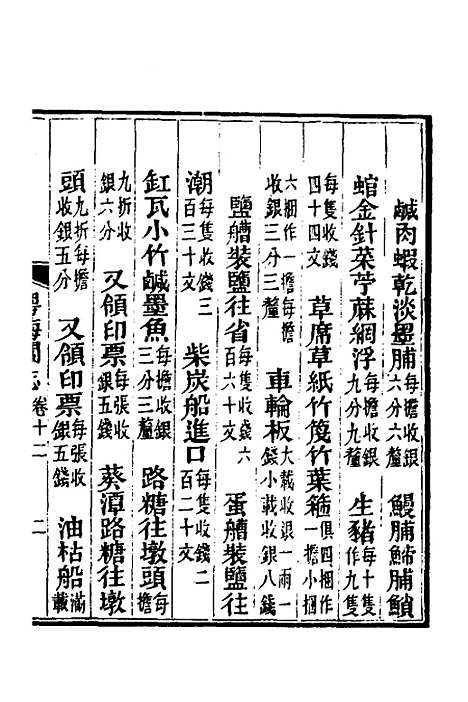 鹹肉蝦乾淡墨脯每擔收銀六分六釐 鰻脯鰤脯鯯
蝖金針菜苧蔴網浮每擔收銀九分九釐 生豬每十隻作九隻
每隻收錢四十四文 草席草紙竹篾竹葉箍俱四捆作一擔小捆
六捆作一擔每擔收銀三分三釐 車輪板大載收銀一兩一錢小載收銀八錢
鹽艚裝鹽往省每隻收錢六百六十文 蛋艚裝鹽往
潮每隻收錢三百三十文 柴炭船進口每隻收錢二百二十文
缸瓦小竹鹹墨魚每擔收銀三分三釐 路糖往墩頭每擔
九折收銀六分 又領印票每張收銀五錢 葵潭路糖往墩
頭九折每擔收銀五分 又領印票每張收銀五錢 油枯船滿載
粤海關志 卷十二 二